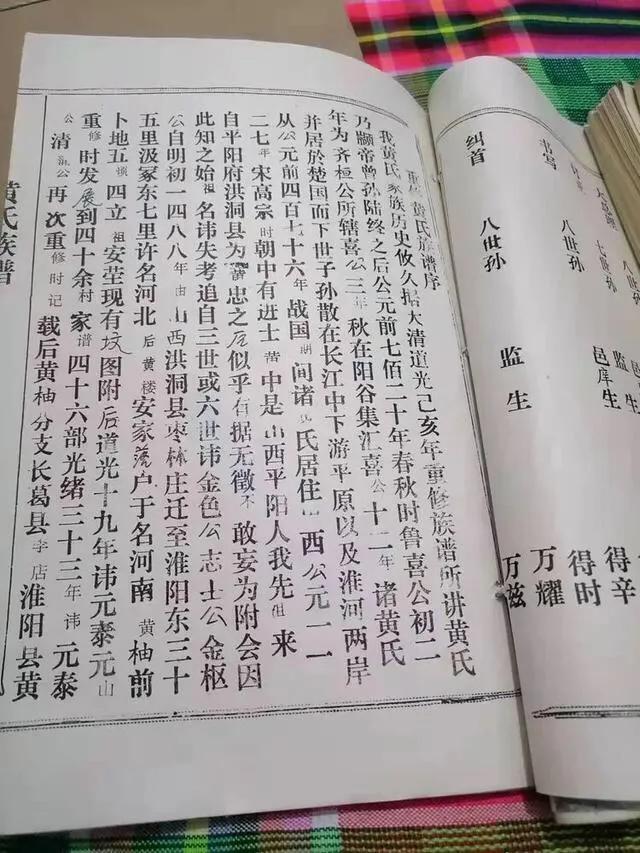 七世孙 监生 得辛
邑庠生 得时
书写 八世孙 万耀
纠首 八世孙 监生 万兹
重修黄氏族谱序
我黄氏家族历史攸久据大清道光己亥年重修族谱所讲黄氏
乃颛帝曾孙陆终之后公元前七佰二十年春秋时鲁喜公初二
年为齐桓公所辖喜公三年秋在阳谷集汇喜公十二年诸黄氏
并居於楚国而下世子孙散在长江中下游平原以及淮河两岸
从公元前四百七十六年战国期间诸氏居住山西公元一一
二七年宋高宗时朝中有进士黄中是山西平阳人我先祖来
自平阳府洪洞县为忠之后似乎有据无徵不敢妄为附会因
此知之始祖名讳失考追自三世或六世讳金色公志士公金枢
公自明初一四八八年由山西洪洞县枣林庄迁至淮阳东三十
五里汲家东七里许名河北后黄楼安家落户于名河南黄柚前
卜地五顷四立祖安茔现有坟图附后道光十九年讳元泰元山
重修时发展到四十余村家谱四十六部光绪三十三年讳元泰
公清公再次重修时记载后黄柚分支长葛县李店淮阳县黄
黄氏族谱